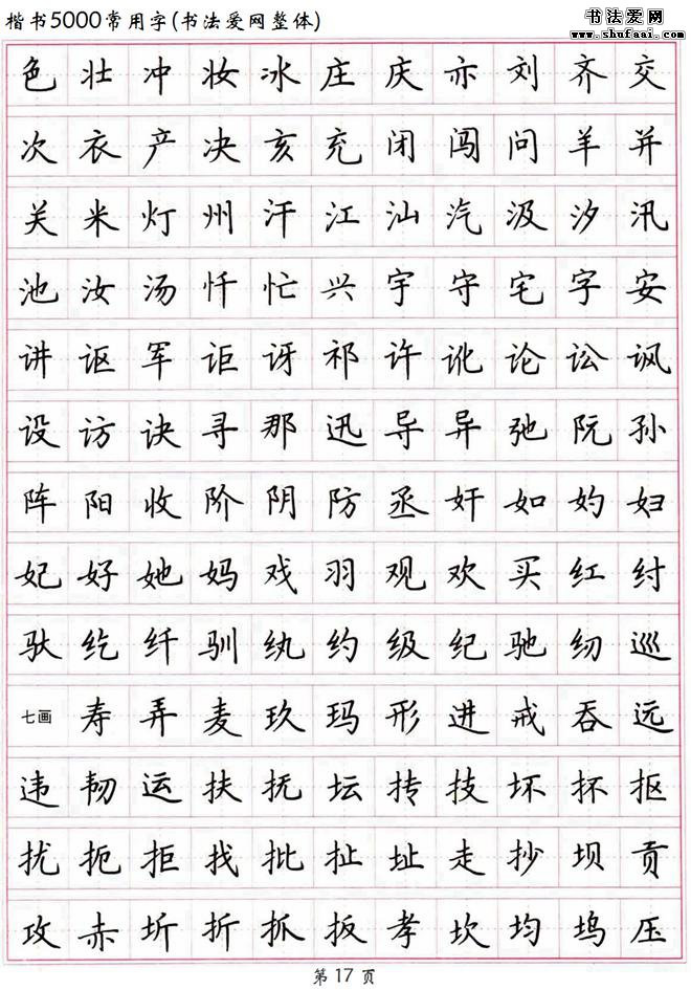 楷书5000常用字(书法爱网整体)
书法爱网
www.shufaai.com
色壮冲妆冰庄庆亦刘齐交
次衣产决亥充闭闯问羊并
关米灯州汗江汕汽汲汐汛
池汝汤忏忙兴宇守宅字安
讲讴军讵讶祁许讹论讼讽
设访诀寻那迅导异弛阮孙
阵阳收阶阴防丞奸如妁妇
妃好她妈戏羽观欢买红纣
驮纥纤驯纨约级纪驰纫巡
七画 寿弄麦玖玛形进戒吞远
违韧运扶抚坛抟技坏抔抠
扰扼拒找批扯址走抄坝贡
攻赤圻折抓扳孝坎均坞压
第 17 页